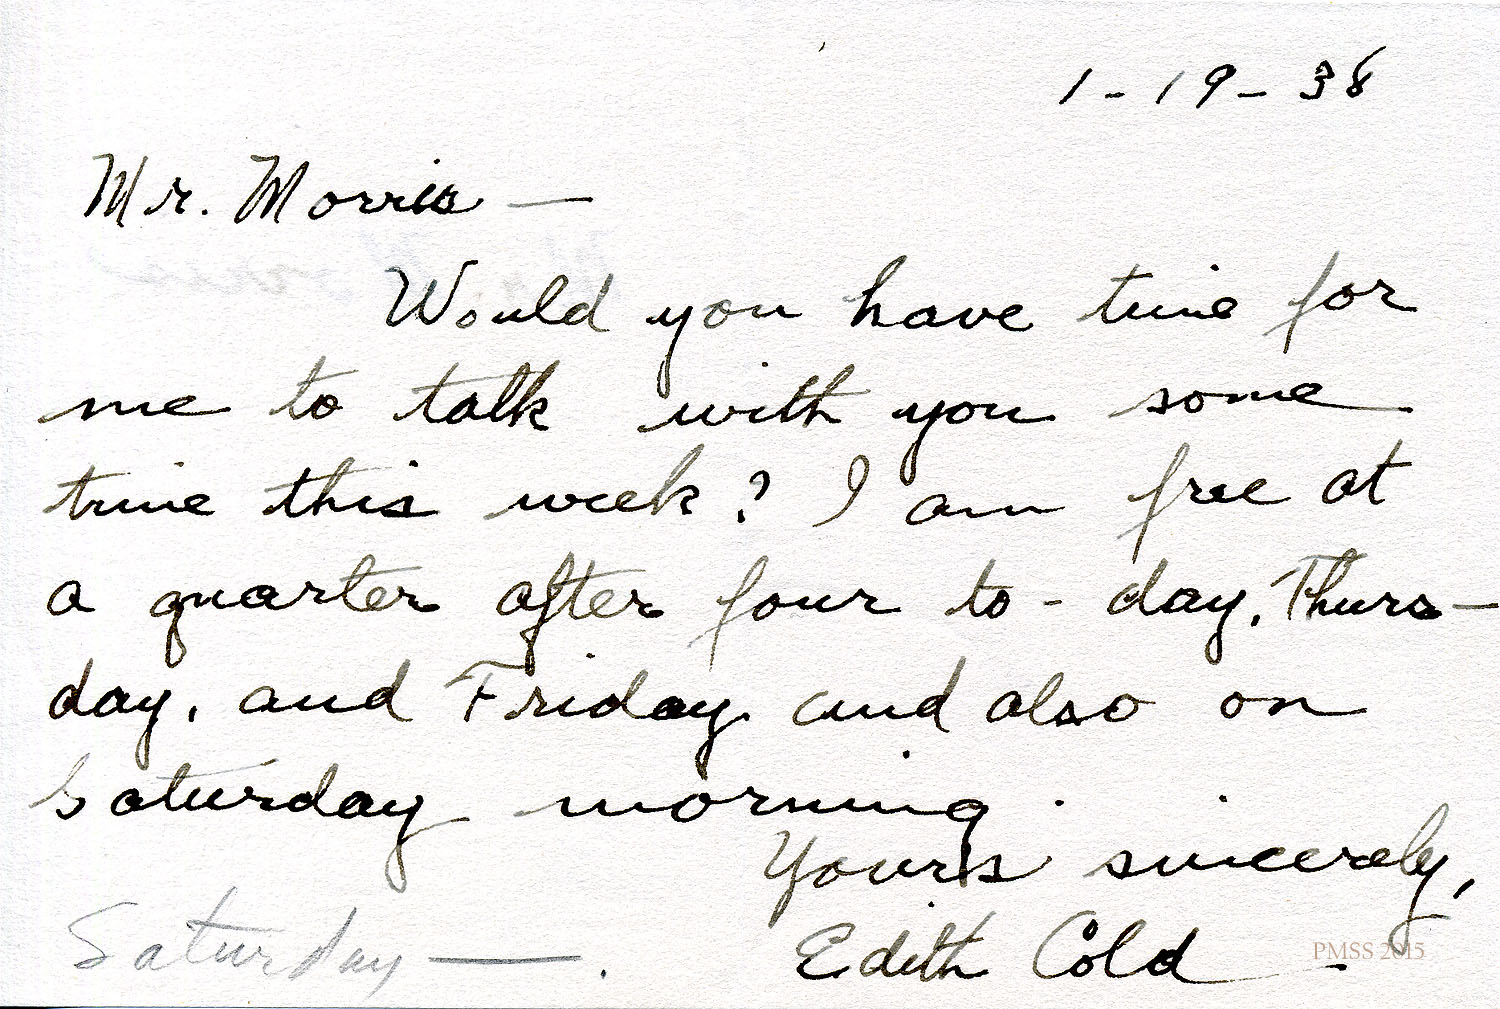 1-19-38
Mr. Morris —
Would you have time for
me to talk with you some
time this week? I am free at
a quarter after four to-day, Thurs-
day, and Friday and also on
Saturday morning.
Yours sincerely,
Edith Cold
Saturday —.
PMSS 2015